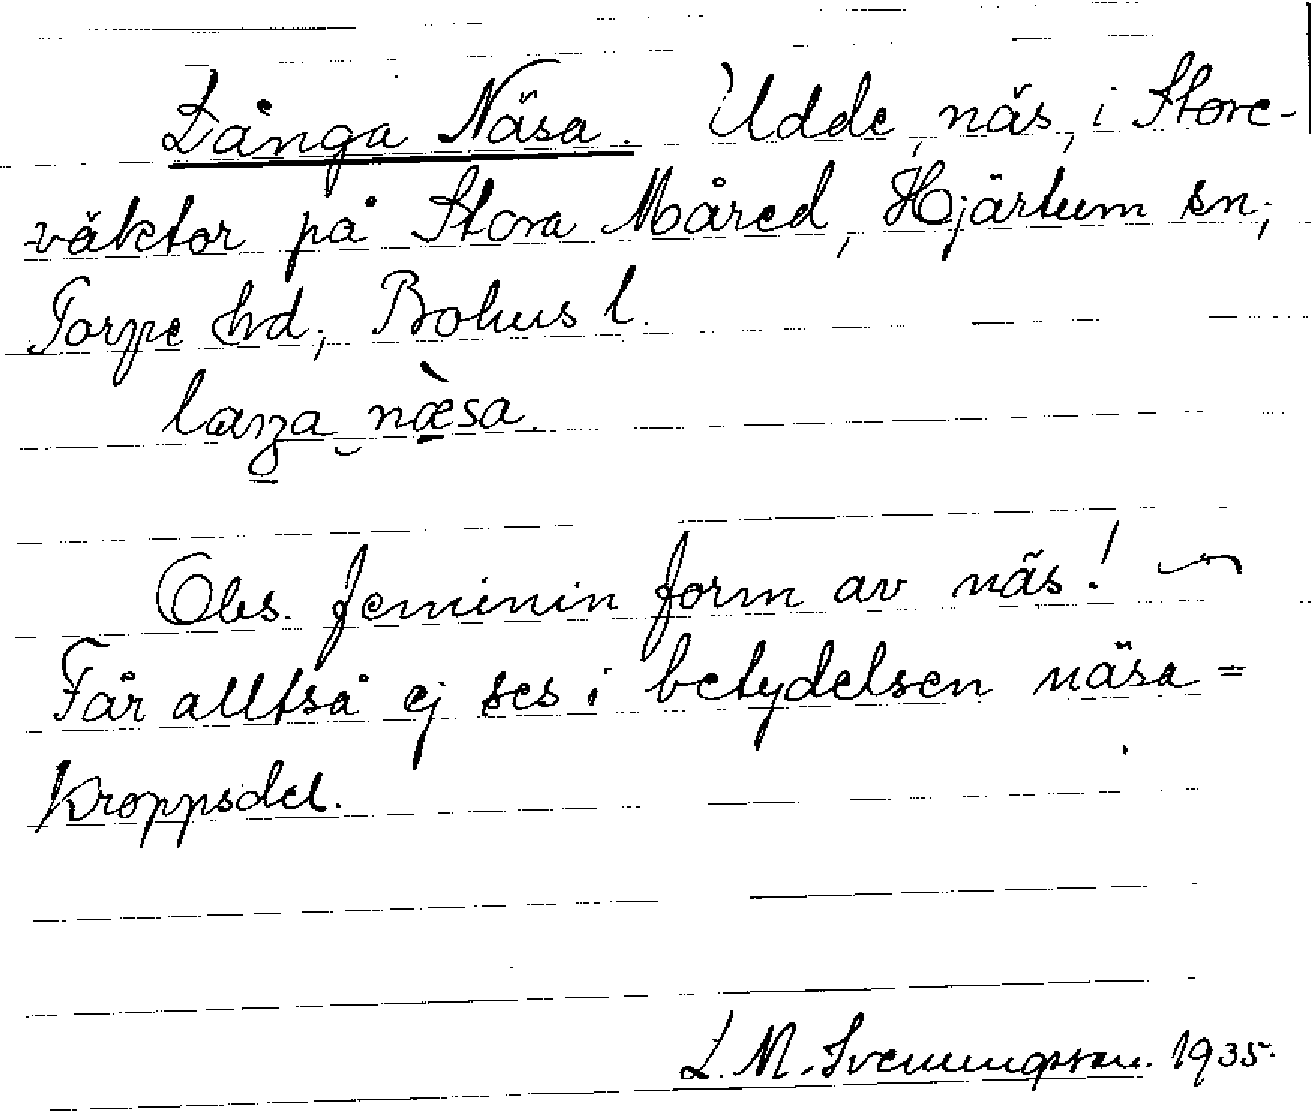 Långa Näsa. Udde, näs, i Store-
väktor på Stora Måred, Hjärtum sn,
Torpe hd, Bohus l.
laŋa næ̀sa.
Obs. feminin form av näs! —
Får alltså ej ses i betydelsen näsa =
kroppsdel.
L. M. Svenungsson. 1935.